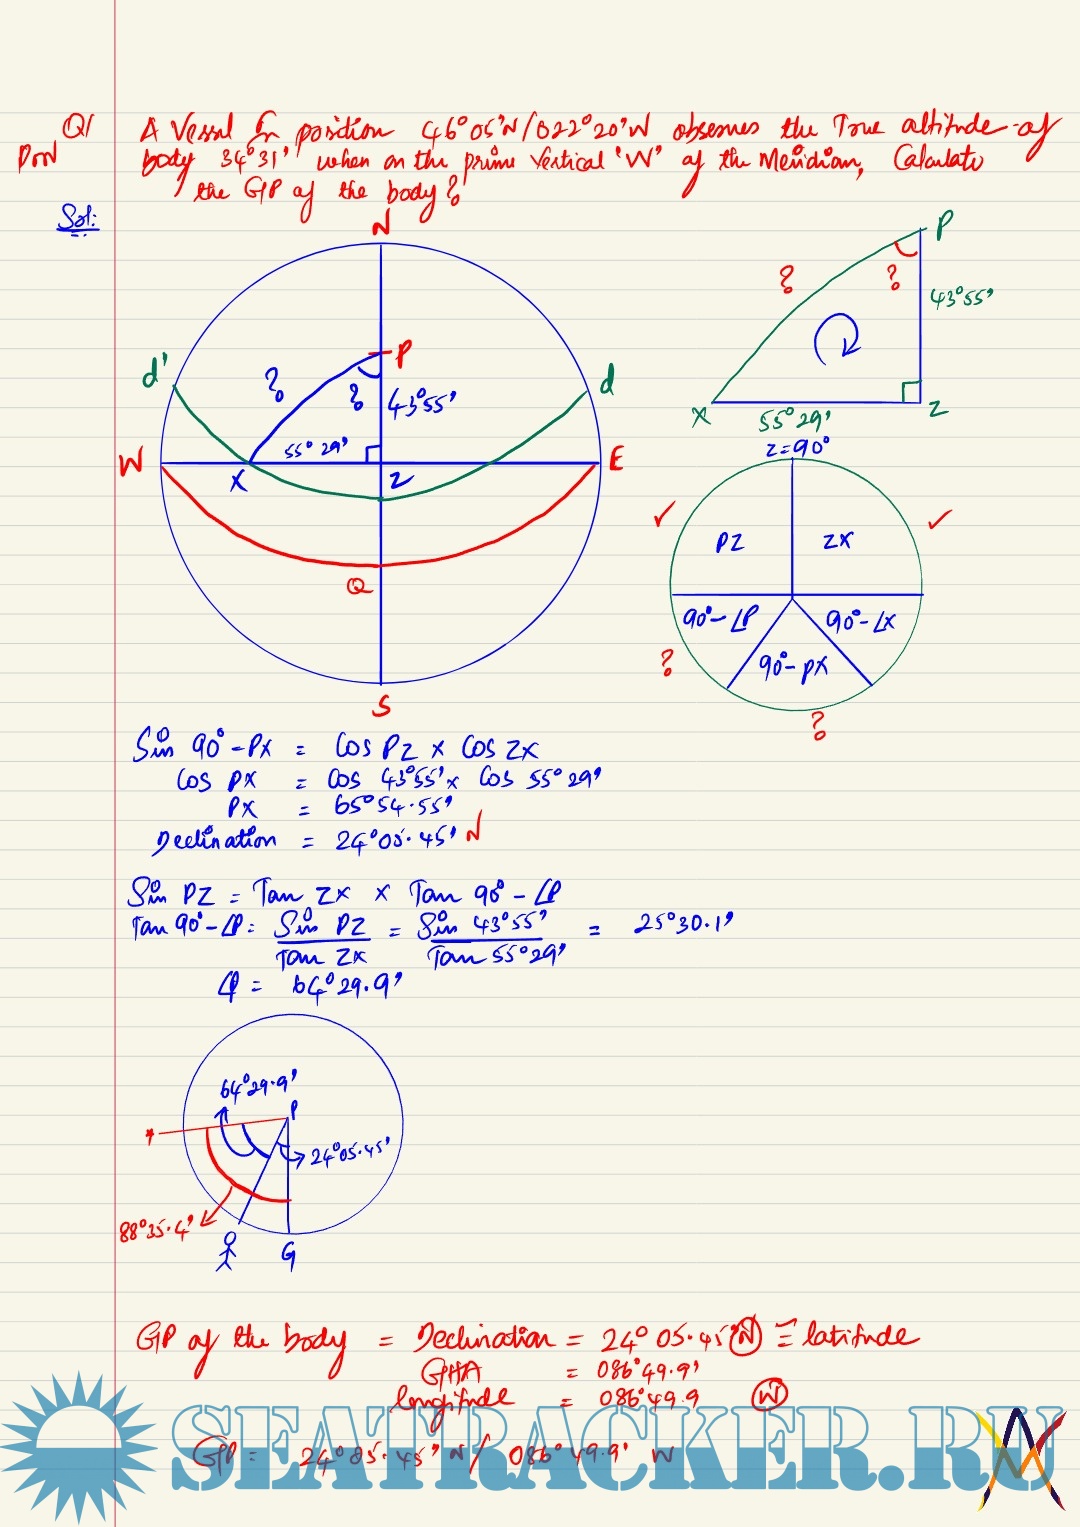 Q1 A Vessel In position 46°05'N/022°20'W observes the True altitude of
body 34°31' when on the prime Vertical 'W' of the Meridian, Calculate
the GP of the body?
Sol:
N
P
?
?
43°55'
d'
d
P
?
?
43°55'
55° 29'
W
X
Z
E
X
55° 29'
Z
Z=90°
Q
S
PZ
ZX
90°-∠P
90°-∠X
90°-PX
?
?
Sin 90°-PX = Cos PZ x Cos ZX
Cos PX = Cos 43°55' x Cos 55°29'
PX = 65°54.55'
Declination = 24°05.45' N
Sin PZ = Tan ZX x Tan 90°-∠P
Tan 90°-∠P = Sin PZ / Tan ZX = Sin 43°55' / Tan 55°29' = 25°30.1'
∠P = 64°29.9'
64°29.9'
P
24°05.45'
88°35.4'
G
GP of the body = Declination = 24° 05.45' N = latitude
GHA = 086°49.9'
longitude = 086°49.9 W
GP = 24°05.45' N/ 086°49.9' W
SEATRACKER.RU